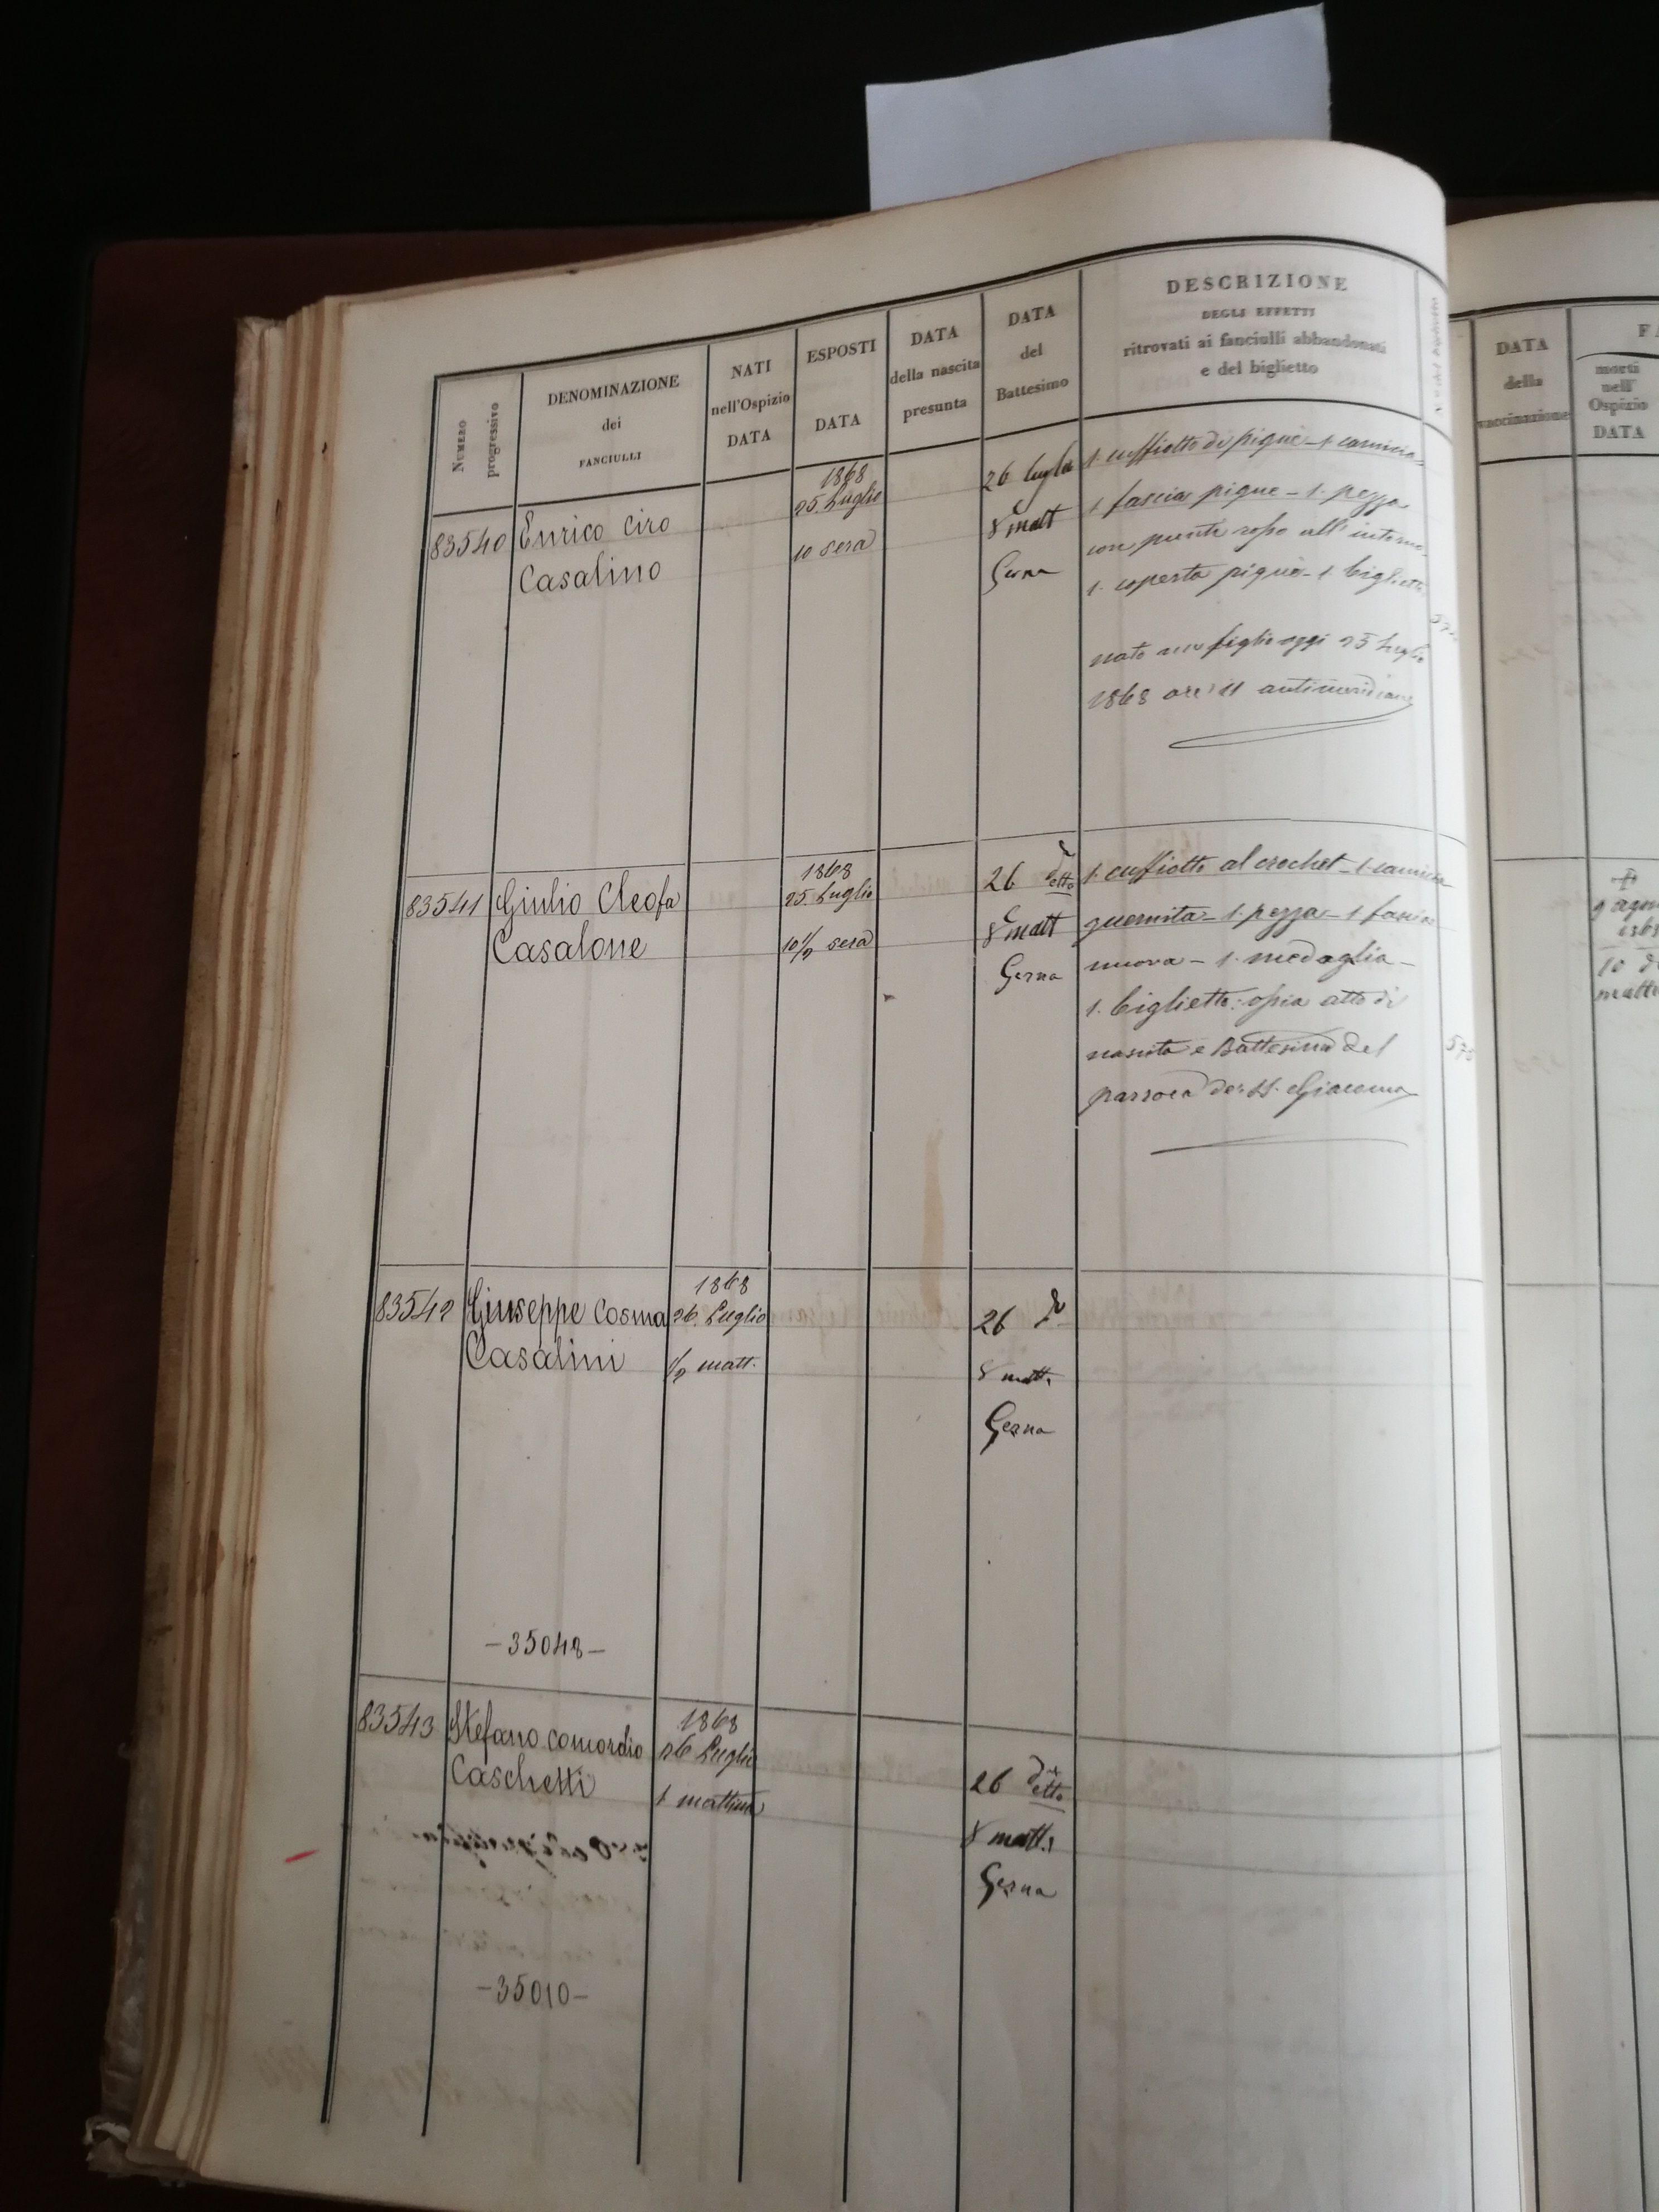 NUMERO
progressivo
DENOMINAZIONE
dei
FANCIULLI
NATI
nell'Ospizio
DATA
ESPOSTI
DATA
DATA
della nascita
presunta
DATA
del
Battesimo
DESCRIZIONE
DEGLI EFFETTI
ritrovati ai fanciulli abbandonati
e del biglietto
DATA
della
vaccinazione
morti
nell'
Ospizio
DATA
83540
Enrico Ciro
Casalino
1868
25. Luglio
10 sera
26 luglio
8 matt
Gerna
1. cuffiotto di piquè - 1. camicia
1 fascia pique - 1. pezza
con punte rosso all'intorno
1. coperta piquè - 1. biglietto
nato un figlio oggi 25 luglio
1868 ore 11 antimeridiane
83541
Giulio Cleofa
Casalone
1868
25. Luglio
10 1/2 sera
26 detto
8 matt
Gerna
1. cuffiotto al crochet - 1. camicia
guernita - 1. pezza - 1 fascia
nuova - 1. medaglia -
1. biglietto: ossia atto di
nascita e Battesimo del
parroco di S. Giacomo
10
83542
Giuseppe Cosma
Casalini
1868
26. Luglio
1/2 matt.
26 do
8 matt.
Gerna
-35048-
83543
Stefano Concordio
Caschetti
1868
26 Luglio
1 mattina
26 detto
8 matt.
Gerna
-35010-